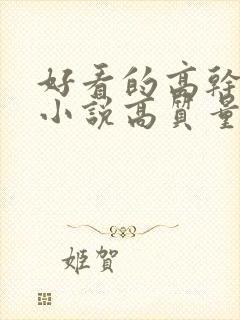 好看的高幹
小說高質量
姬賀